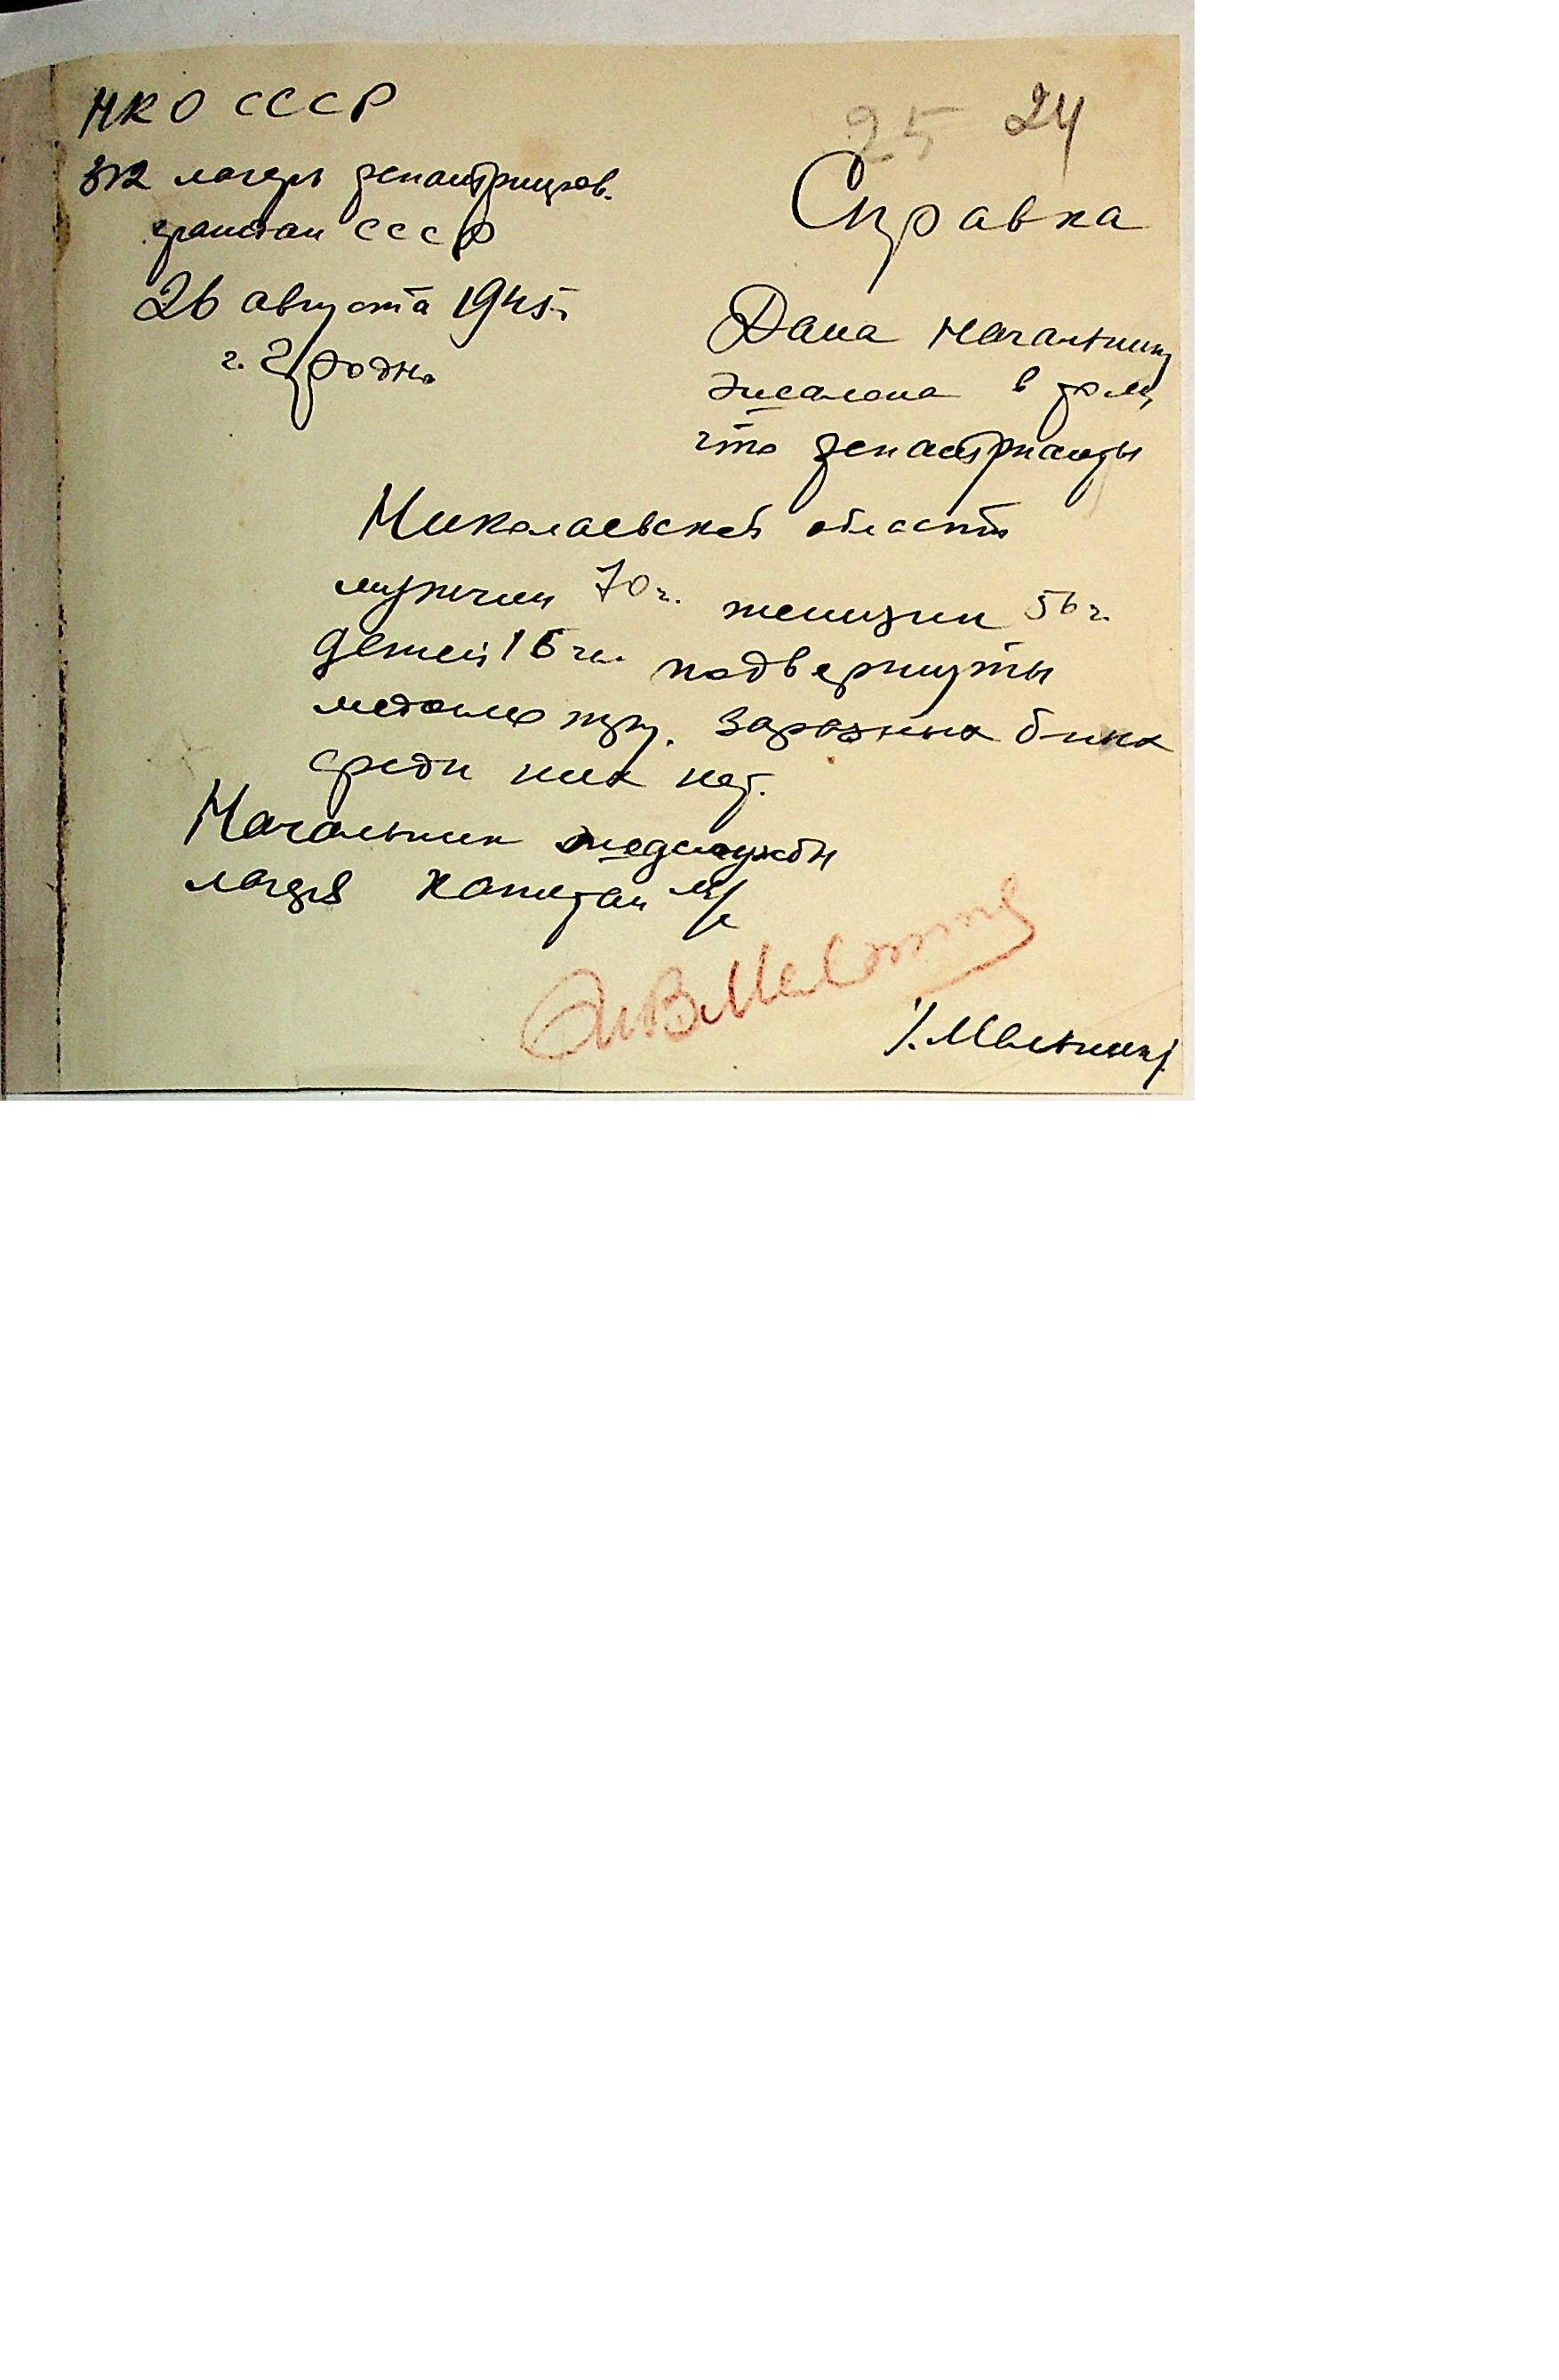 НКО СССР
25 24
312 лагерь репатрииров.
граждан СССР
26 августа 1945г.
г. Гродно
Справка
Дана начальнику
эшалона в том,
что репатрианты
Николаевской области
мужчин 70 ч. женщин 56 ч.
детей 16 чл. подвергнуты
медосмотру. Заразных б-ных
среди них нет.
Начальник медслужбы
лагеря капитан м/с
/. Мельник/.